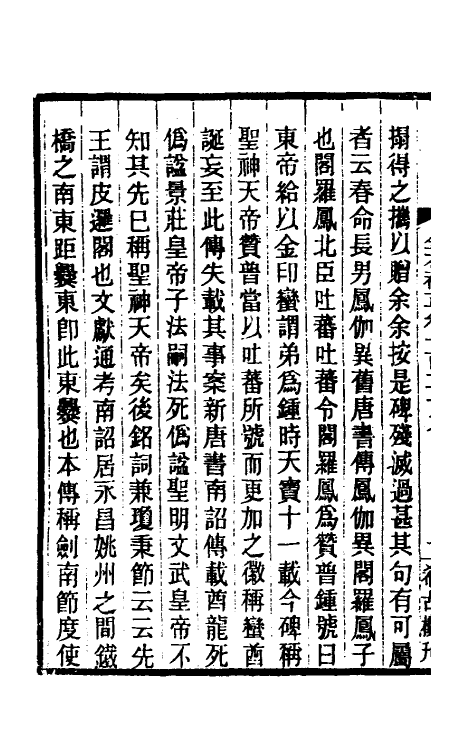 搨得之攜以贈余余按是碑殘滅過甚其句有可屬
者云春命長男鳳伽異舊唐書傳鳳伽異閣羅鳳子
也閣羅鳳北臣吐蕃吐蕃令閣羅鳳爲贊普鍾號曰
東帝給以金印蠻謂弟爲鍾時天寶十一載今碑稱
聖神天帝贊普當以吐蕃所號而更加之徽稱蠻酋
誕妄至此傳失載其事案新唐書南詔傳載酋龍死
僞諡景莊皇帝子法嗣法死僞諡聖明文武皇帝不
知其先巳稱聖神天帝矣後銘詞兼瓊秉節云云先
王謂皮邏閣也文獻通考南詔居永昌姚州之間鐵
橋之南東距爨東卽此東爨也本傳稱劍南節度使